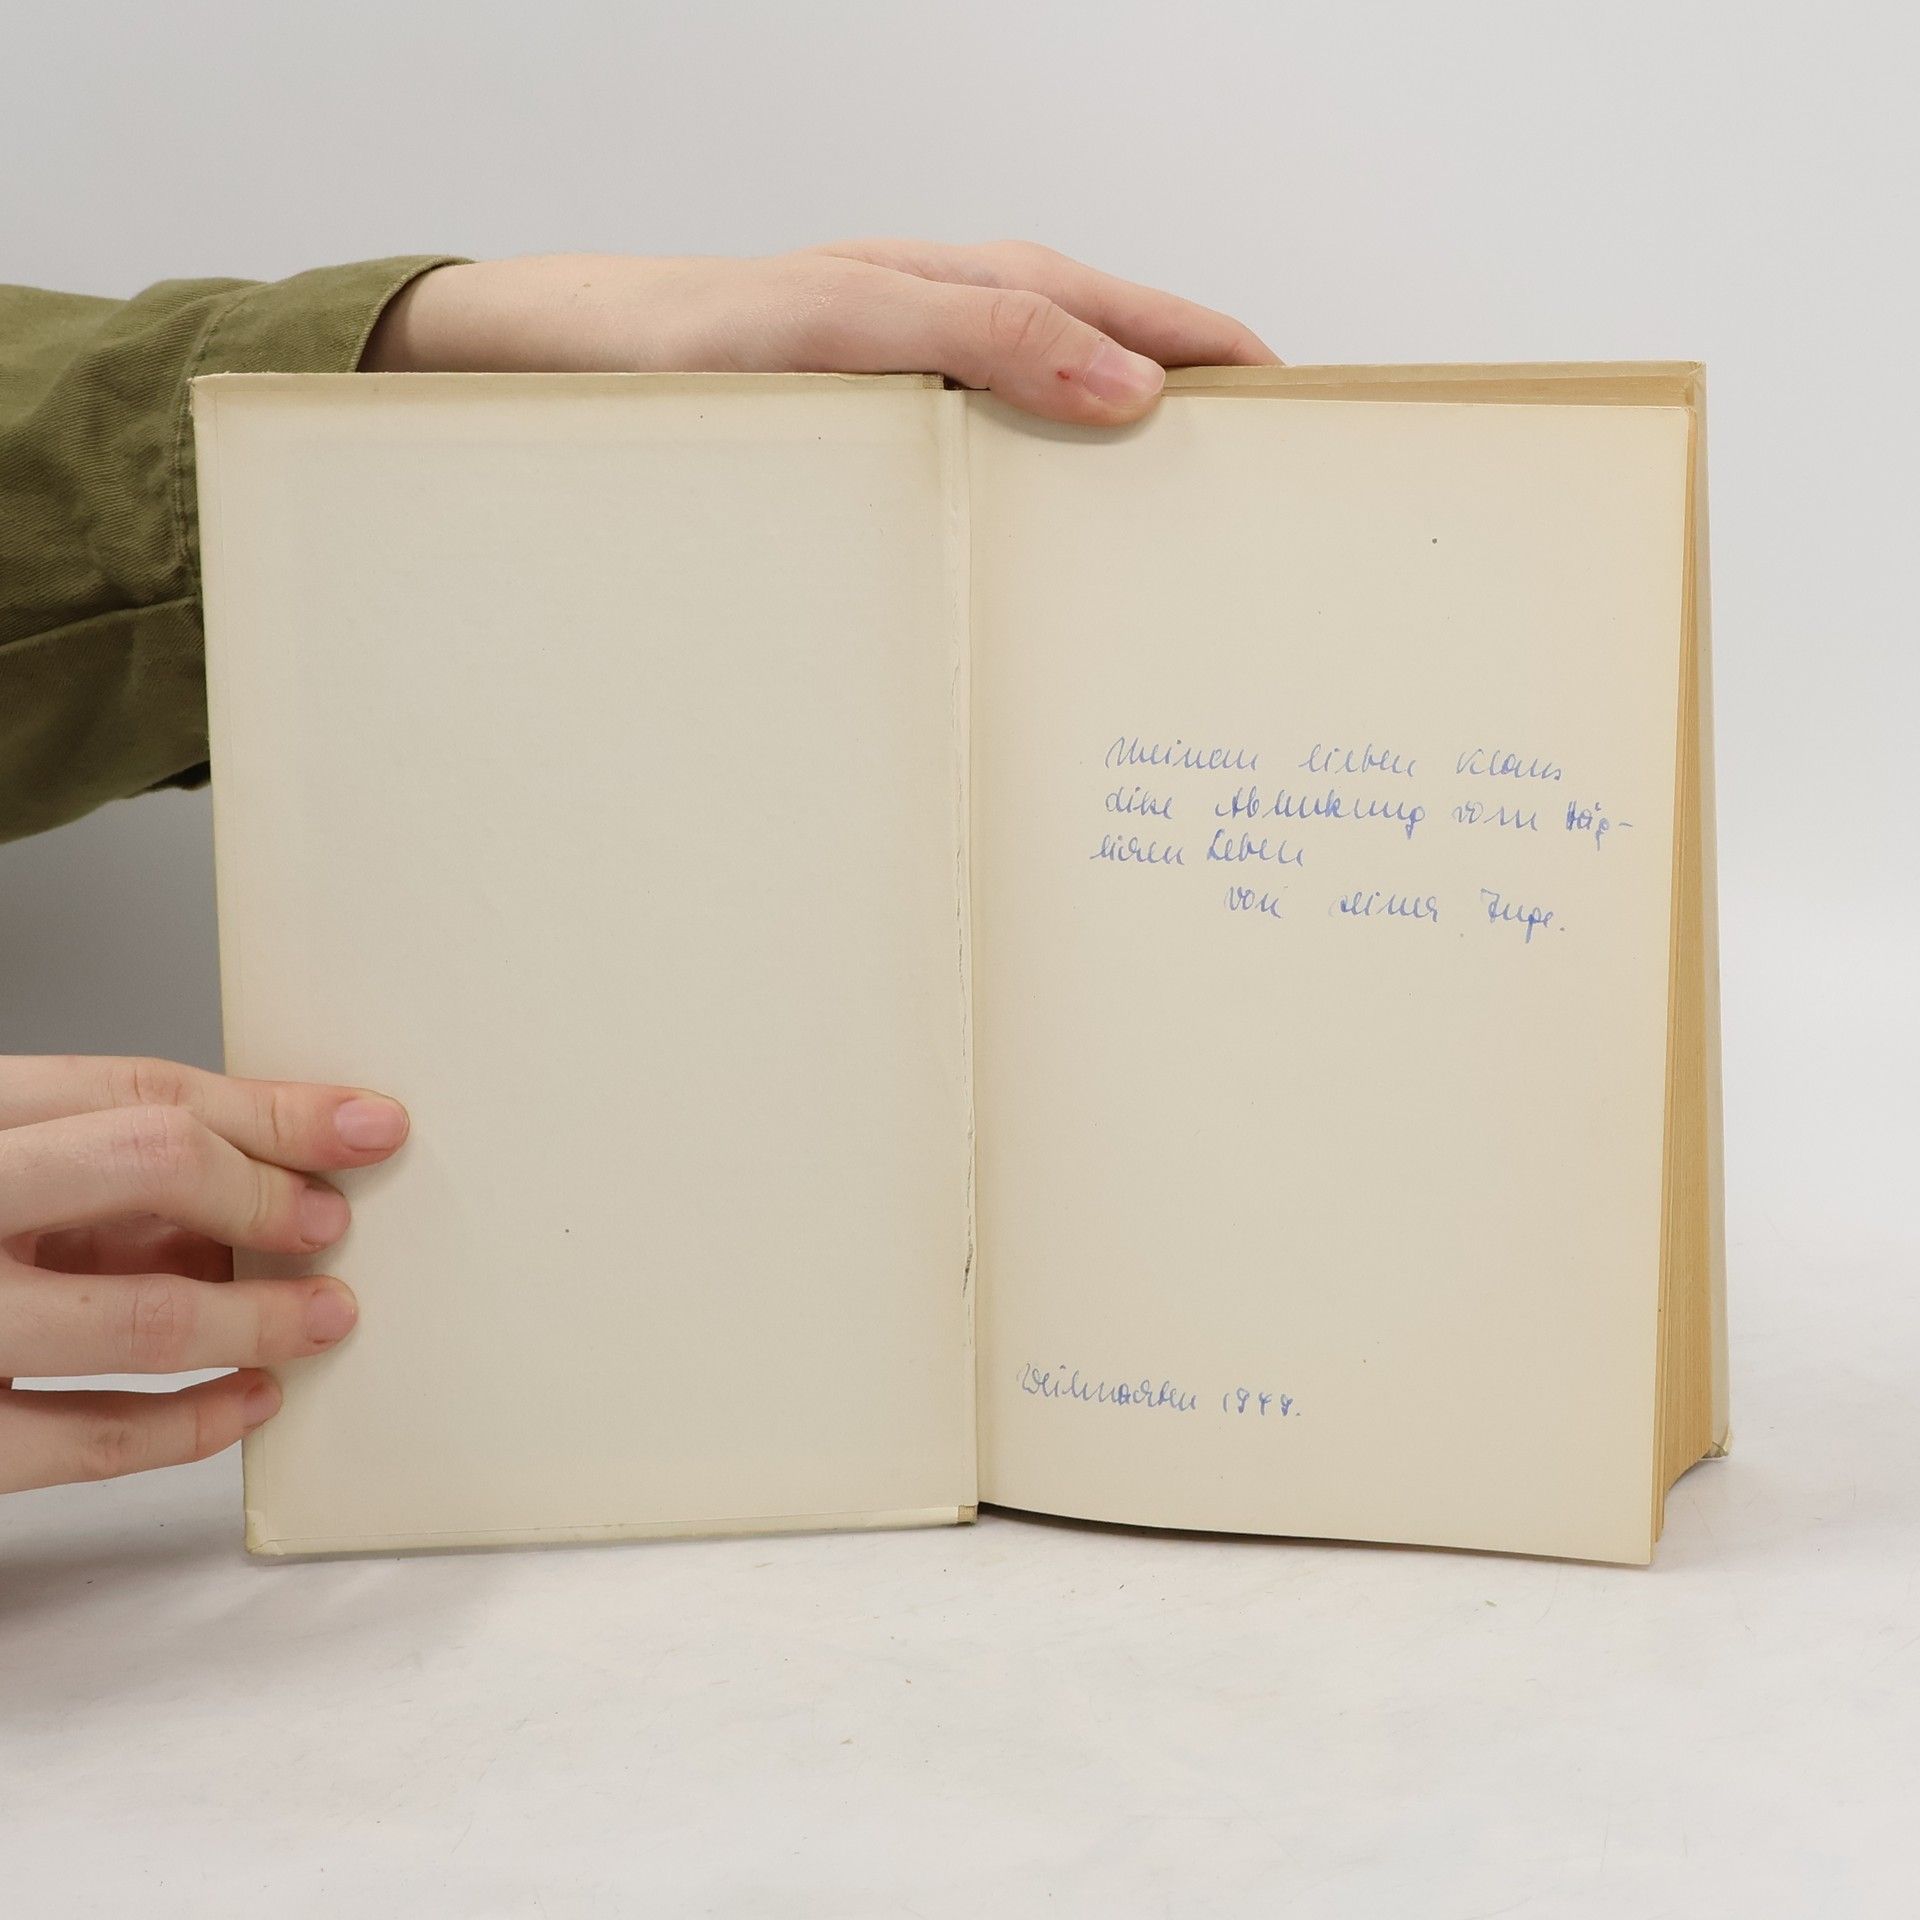 Meinem lieben Klaus
diese Ablenkung vom täg-
lichen Leben
von deiner Inge.
Weihnachten 1949.